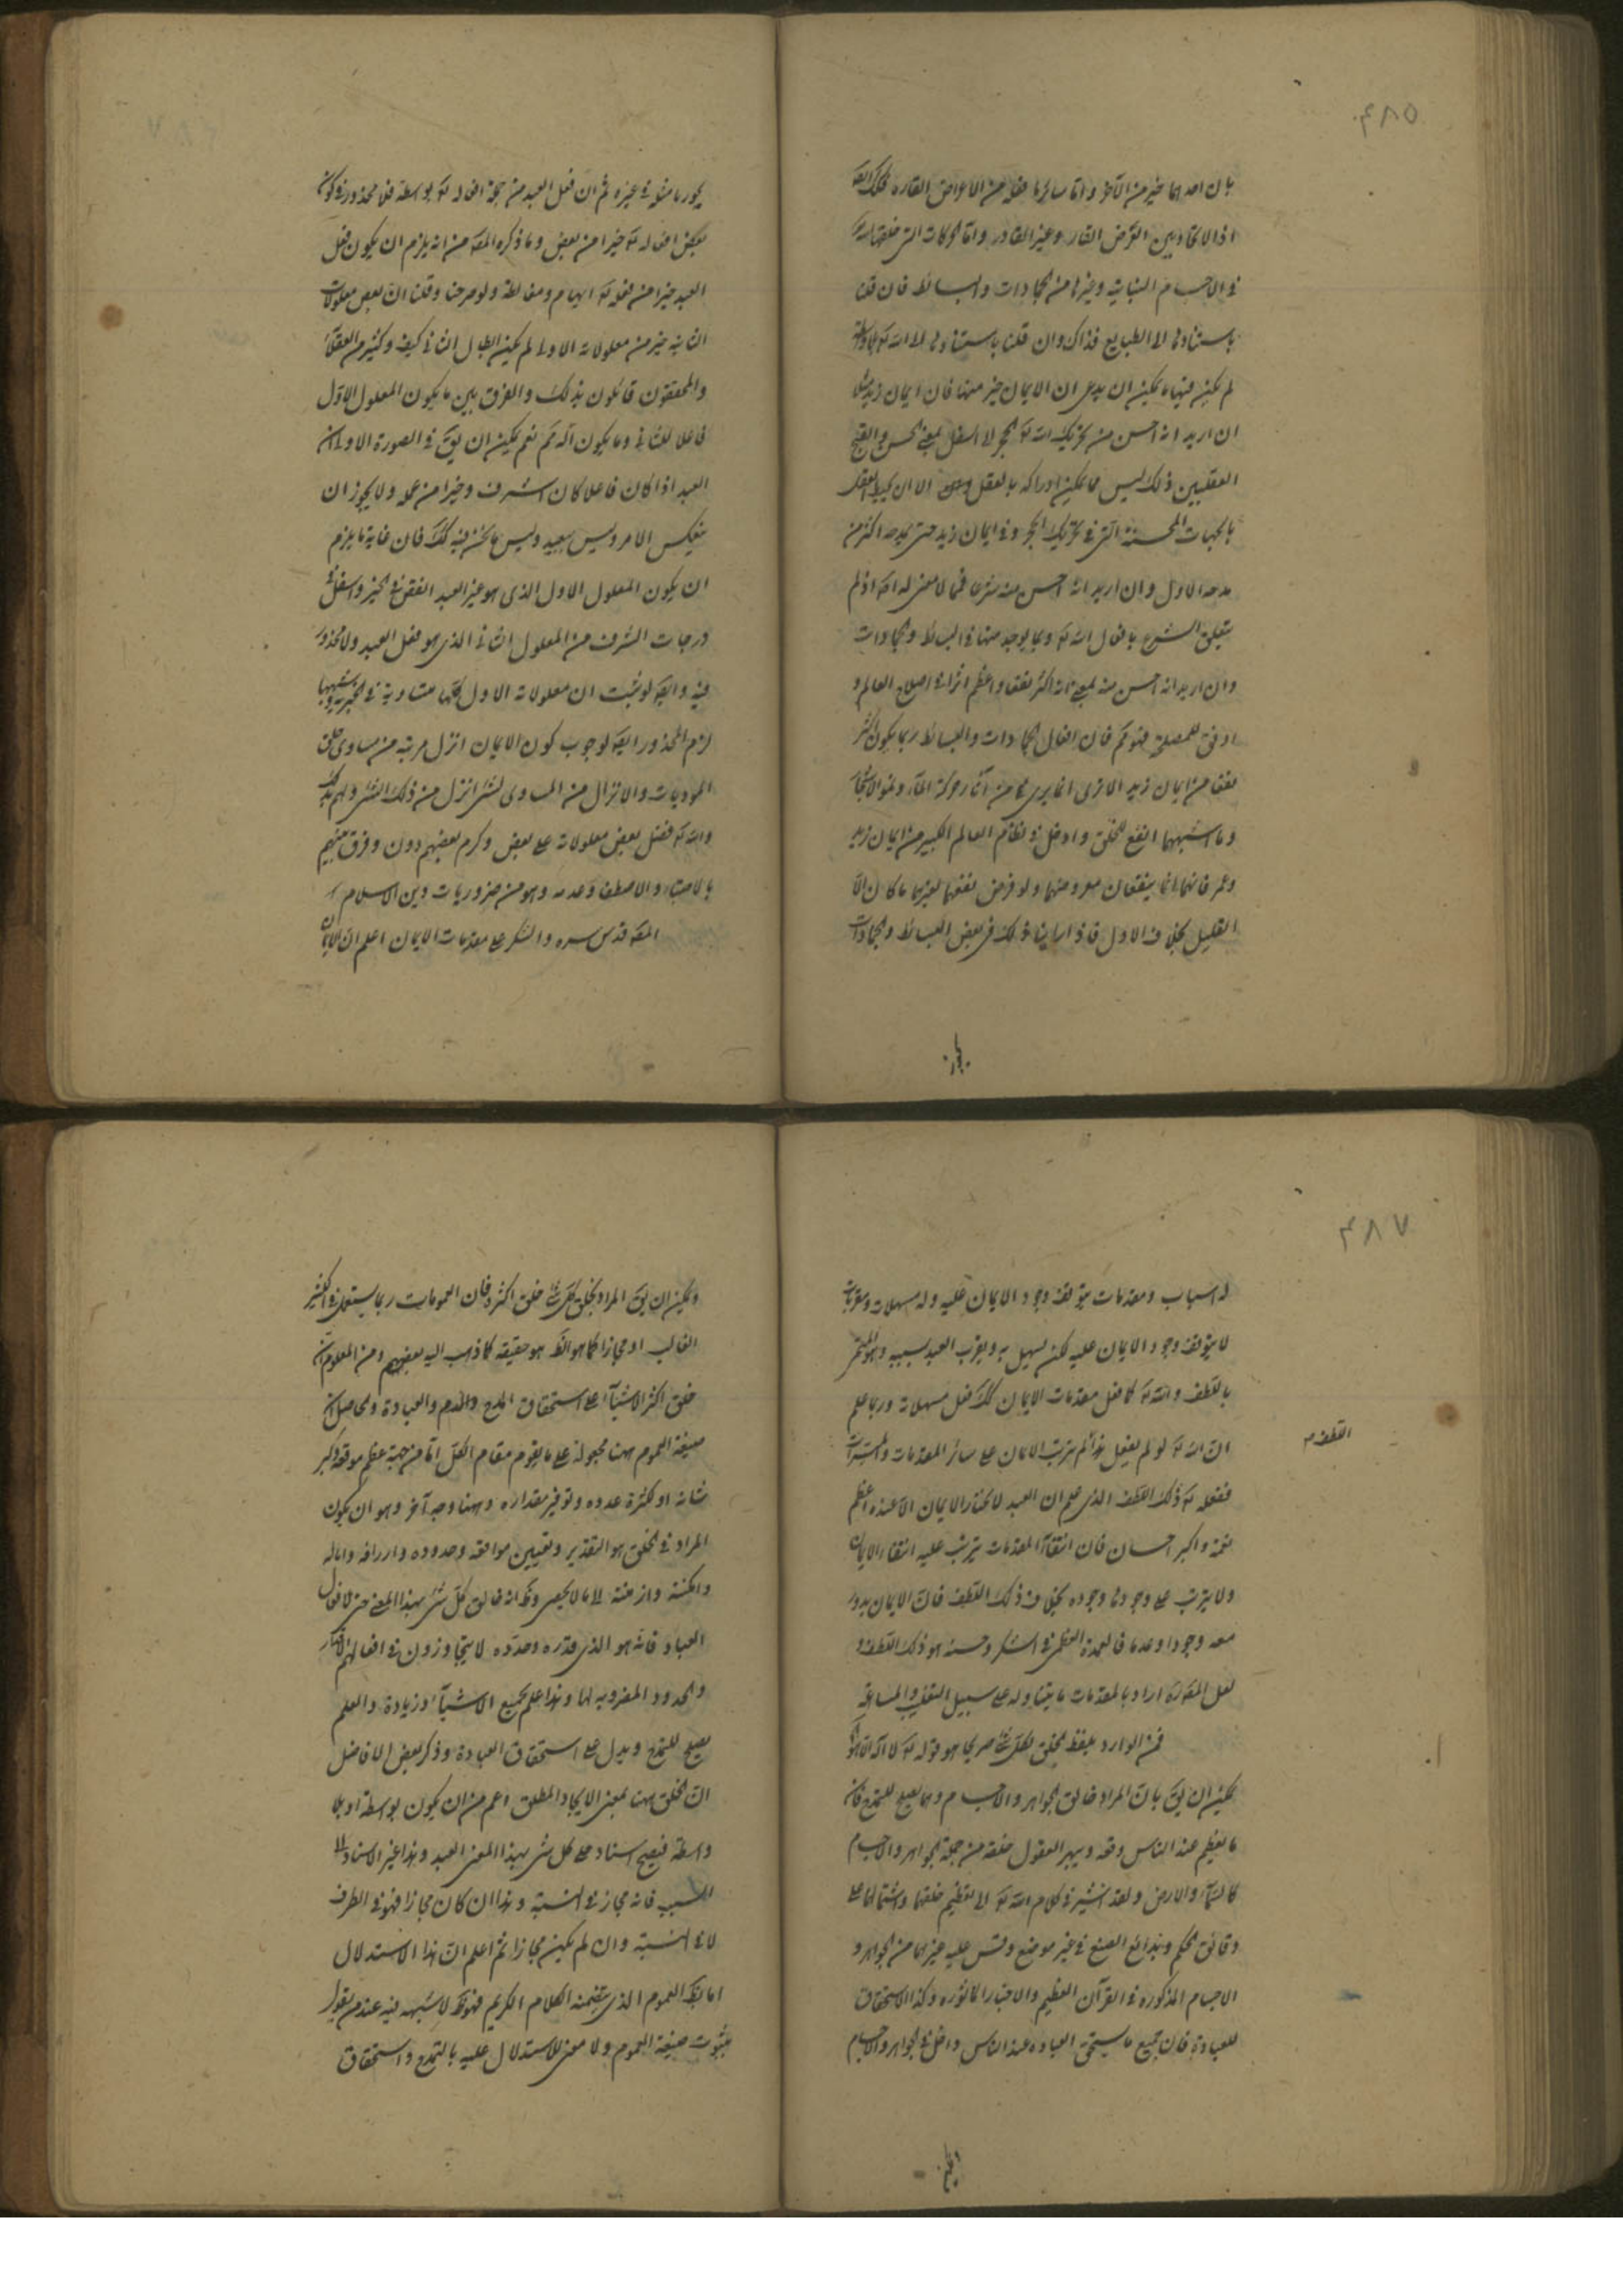 ٤٨٥
بان احدهما خير من الآخر واما سائر ما خلقه من الاعراض القاره فكك ايضا
اذ الايجاد بين العرض القار وغير القار واما الحركات التى خلقها الله تع
فى الاجسام النباتيه وغيرها من الجمادات والبسائط فان قلنا
باستنادها الى الطبايع فذاك وان قلنا باستنادها الى الله تع
لم يكن فيها ما يمكن ان يدعى ان الايمان خير منها فان ايمان زيد مثلا
ان اريد انه احسن من تحريك الله تع الحجر الى اسفل بمعنى الحسن والقبح
العقليين فذلك ليس مما يمكن ادراكه بالعقل الا ان يحيط العقل
بالجهات المحسنة التى فى تحريك الحجر وفى ايمان زيد حتى يمدحه اكثر من
مدحه الاول وان اريد انه احسن منه شرعا فمما لا معنى له اذ لم
يتعلق الشرع بافعال الله تع وبما يوجد منها فى البسائط والجمادات
وان اريد انه احسن منه بمعنى انه اكثر نفعا واعظم اثرا فى اصلاح العالم و
اوفق للمصلحة فهو كم فان افعال الجمادات والبسائط ربما يكون اكثر
نفعا من ايمان زيد الا ترى ان ما يرى من آثار حركة الماء ونمو الاشجار
وما اشبهها انفع للخلق وادخل فى نظام العالم الكبير من ايمان زيد
وعمر فانهما انما ينفعان معروضهما ولو فرض نفعهما لغيرهما ما كان الا
القليل بخلاف الاول فاذا راينا ذلك فى بعض البسائط والجمادات
يجوز
يجوز ما مثله فى غيره ثم ان فعل العبد من جملة افعاله تع بواسطة فلا محذور فى كون
بعض افعاله تع خيرا من بعض وما ذكره المصه من انه يلزم ان يكون فعل
العبد خيرا من فعله تع ايهام ومغالطه ولو صرحنا وقلنا ان بعض معلولاته
الثانيه خير من معلولاته الاولى لم يكن ابطال الثانى كيف وكثير من العقلاء
والمحققون قائلون بذلك والفرق بين ما يكون المعلول الاول
فاعلا للثانى وما يكون آلة تم نعم يمكن ان يق فى الصورة الاولى ان
العبد اذا كان فاعلا كان اشرف وخيرا من عمله ولا يجوز ان
ينعكس الامر وليس ببعيد وليس ما نحن فيه كك فان غاية ما يلزم
ان يكون المعلول الاول الذى هو غير العبد انقص فى الخير واسفل فى
درجات الشرف من المعلول الثانى الذى هو فعل العبد ولا محذور
فيه وايضا لو ثبت ان معلولاته الاول كلها متساوية فى الخيريه وشبهها
لزم المحذور ايضا لوجوب كون الايمان انزل مرتبه من مساوى خلق
الموذيات والانزل من المساوى لشئ انزل من ذلك الشئ
والله تع فضل بعض معلولاته على بعض وكرم بعضهم دون وفرق بينهم
بالاجتباء والاصطفاء وعدمه وهو من ضروريات دين الاسلام
المصه قدس سره والشكر على مقدمات الايمان اعلم ان للايمان
٤٨٧
له اسباب ومقدمات يتوقف وجود الايمان عليه وله مسهلات ومقربات
لا يتوقف وجود الايمان عليه لكن يسهل به ويقرب العبد بسببه وهو المفسر
باللطف والله تع كما فعل مقدمات الايمان كك فعل مسهلاته وربما علم
ان الله تع لو لم يفعل هذا لم يترتب الايمان على سائر المقدمات
ففعله تع ذلك اللطف الذى علم ان العبد لا يختار الايمان الا عنده اعظم
نعمة واكبر احسان فان انتفاء المقدمات يترتب عليه انتفاء الايمان
ولا يترتب على وجودها وجوده بخلاف ذلك اللطف فان الايمان يدور
معه وجودا وعدما فالعمدة العظمى فى الشكر وحسنه هو ذلك اللطف و
لعل المصه ره اراد بالمقدمات ما يتناوله على سبيل التغليب والمسامحه
اللطف م
فى الوارد بلفظ الخلق لكل شئ صريحا هو قوله تع لا اله الا هو
يمكن ان يق بان المراد خالق الجواهر والاجسام ومما يصلح للتمدح فان
ما يعظم عند الناس وقعه ويبهر العقول خلقه من جملة الجواهر والاجسام
كالسماء والارض ولقد اشير فى كلام الله تع الى تعظيم خلقهما واشتمالهما على
دقائق الحكم وبدائع الصنع فى غير موضع وقس عليه غيرهما من الجواهر و
الاجسام المذكوره فى القرآن العظيم والاخبار الماثوره وكذا الاستحقاق
للعباده فان جميع ما يستحق العباده عند الناس داخل فى الجواهر والاجسام
ويمكن ان يق المراد بخلق كل شئ خلق اكثره فان العمومات ربما يستعمل فى الكثير
الغالب او مجازا كما هو الظ هو حقيقه كما ذهب اليه بعضهم ومن المعلوم ان
خلق اكثر الاشياء على استحقاق المدح والتمدح والعبادة والحاصل ان
صيغة العموم ههنا محمولة على ما يقوم مقام الكل اما من جهة عظم موقعه وكبر
شانه او كثرة عدده وتوفير مقداره وههنا وجه آخر وهو ان يكون
المراد فى الخلق هو التقدير وتعيين مواقعه وحدوده وارزاقه وآجاله
وامكنته وازمنته الى ما لا يحصى وظ انه خالق كل شئ بهذا المعنى حتى لافعال
العباد فانه هو الذى قدره وحدده لا يتجاوزون فى افعالهم الاقدار
والحدود المضروبه لها وهذا علم بجميع الاشياء وزيادة والعلم
يصلح للتمدح ويدل على استحقاق العبادة وذكر بعض الافاضل
ان الخلق ههنا بمعنى الايجاد المطلق اعم من ان يكون بواسطة او بلا
واسطة فيصح اسناد خلق كل شئ بهذا المعنى العبد وهذا غير الاسناد الى
السبب فانه مجاز فى النسبة وهذا ان كان مجازا فهو فى الطرف
لا فى النسبة وان لم يكن مجازا ثم اعلم ان هذا الاستدلال
اما بلفظ العموم الذى يتضمنه الكلام الكريم فهو ظ لا شبهه فيه عند من يقول
بثبوت صيغة العموم ولا معنى للاستدلال عليه بالتمدح واستحقاق